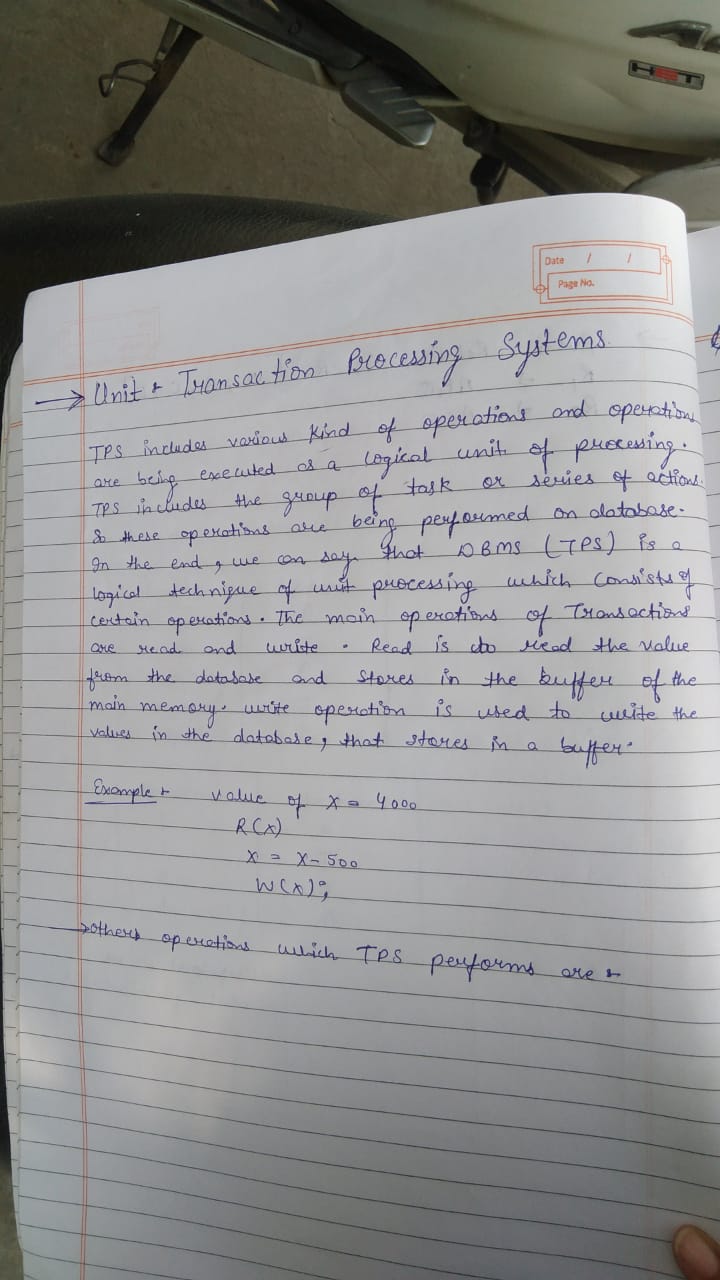 Date / /
Page No.
→ Unit :- Transaction Processing Systems.
TPS includes various kind of operations and operations
are being executed as a logical unit of processing.
TPS includes the group of task or series of actions.
So these operations are being performed on database.
In the end, we can say that DBMS (TPS) is a
logical technique of unit processing which consists of
certain operations. The main operations of Transactions
are read and write. Read is to read the value
from the database and stores in the buffer of the
main memory. write operation is used to write the
values in the database, that stores in a buffer.
Example :- value of X = 4000
R(X)
X = X - 500
W(X);
→ others operations which TPS performs are :-